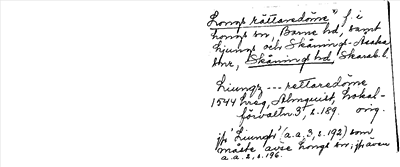 Longs rättaredöme" f. i
Longs sn, Barne hd, samt
Ljungs och Skånings-Åsaka
snr, Skånings hd, Skarab. l.
Liungz --- rettaredöme
1544 hreg, Almquist, Lokal-
förvaltn. 3, s. 189. orig.
jfr 'Liungs' (a.a., 3, s. 192) som
måste avse Longs sn; jfr även
a.a. 2, s. 196.